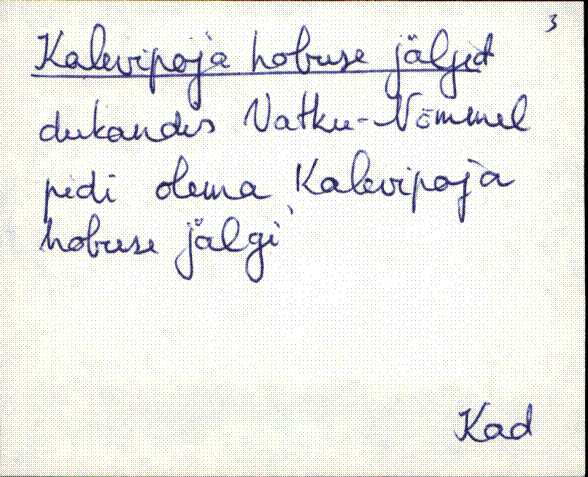 3
Kalevipoja hobuse jäljed
dukandes Vatku-Nõmmel
pidi olema Kalevipoja
hobuse jälgi
Kad